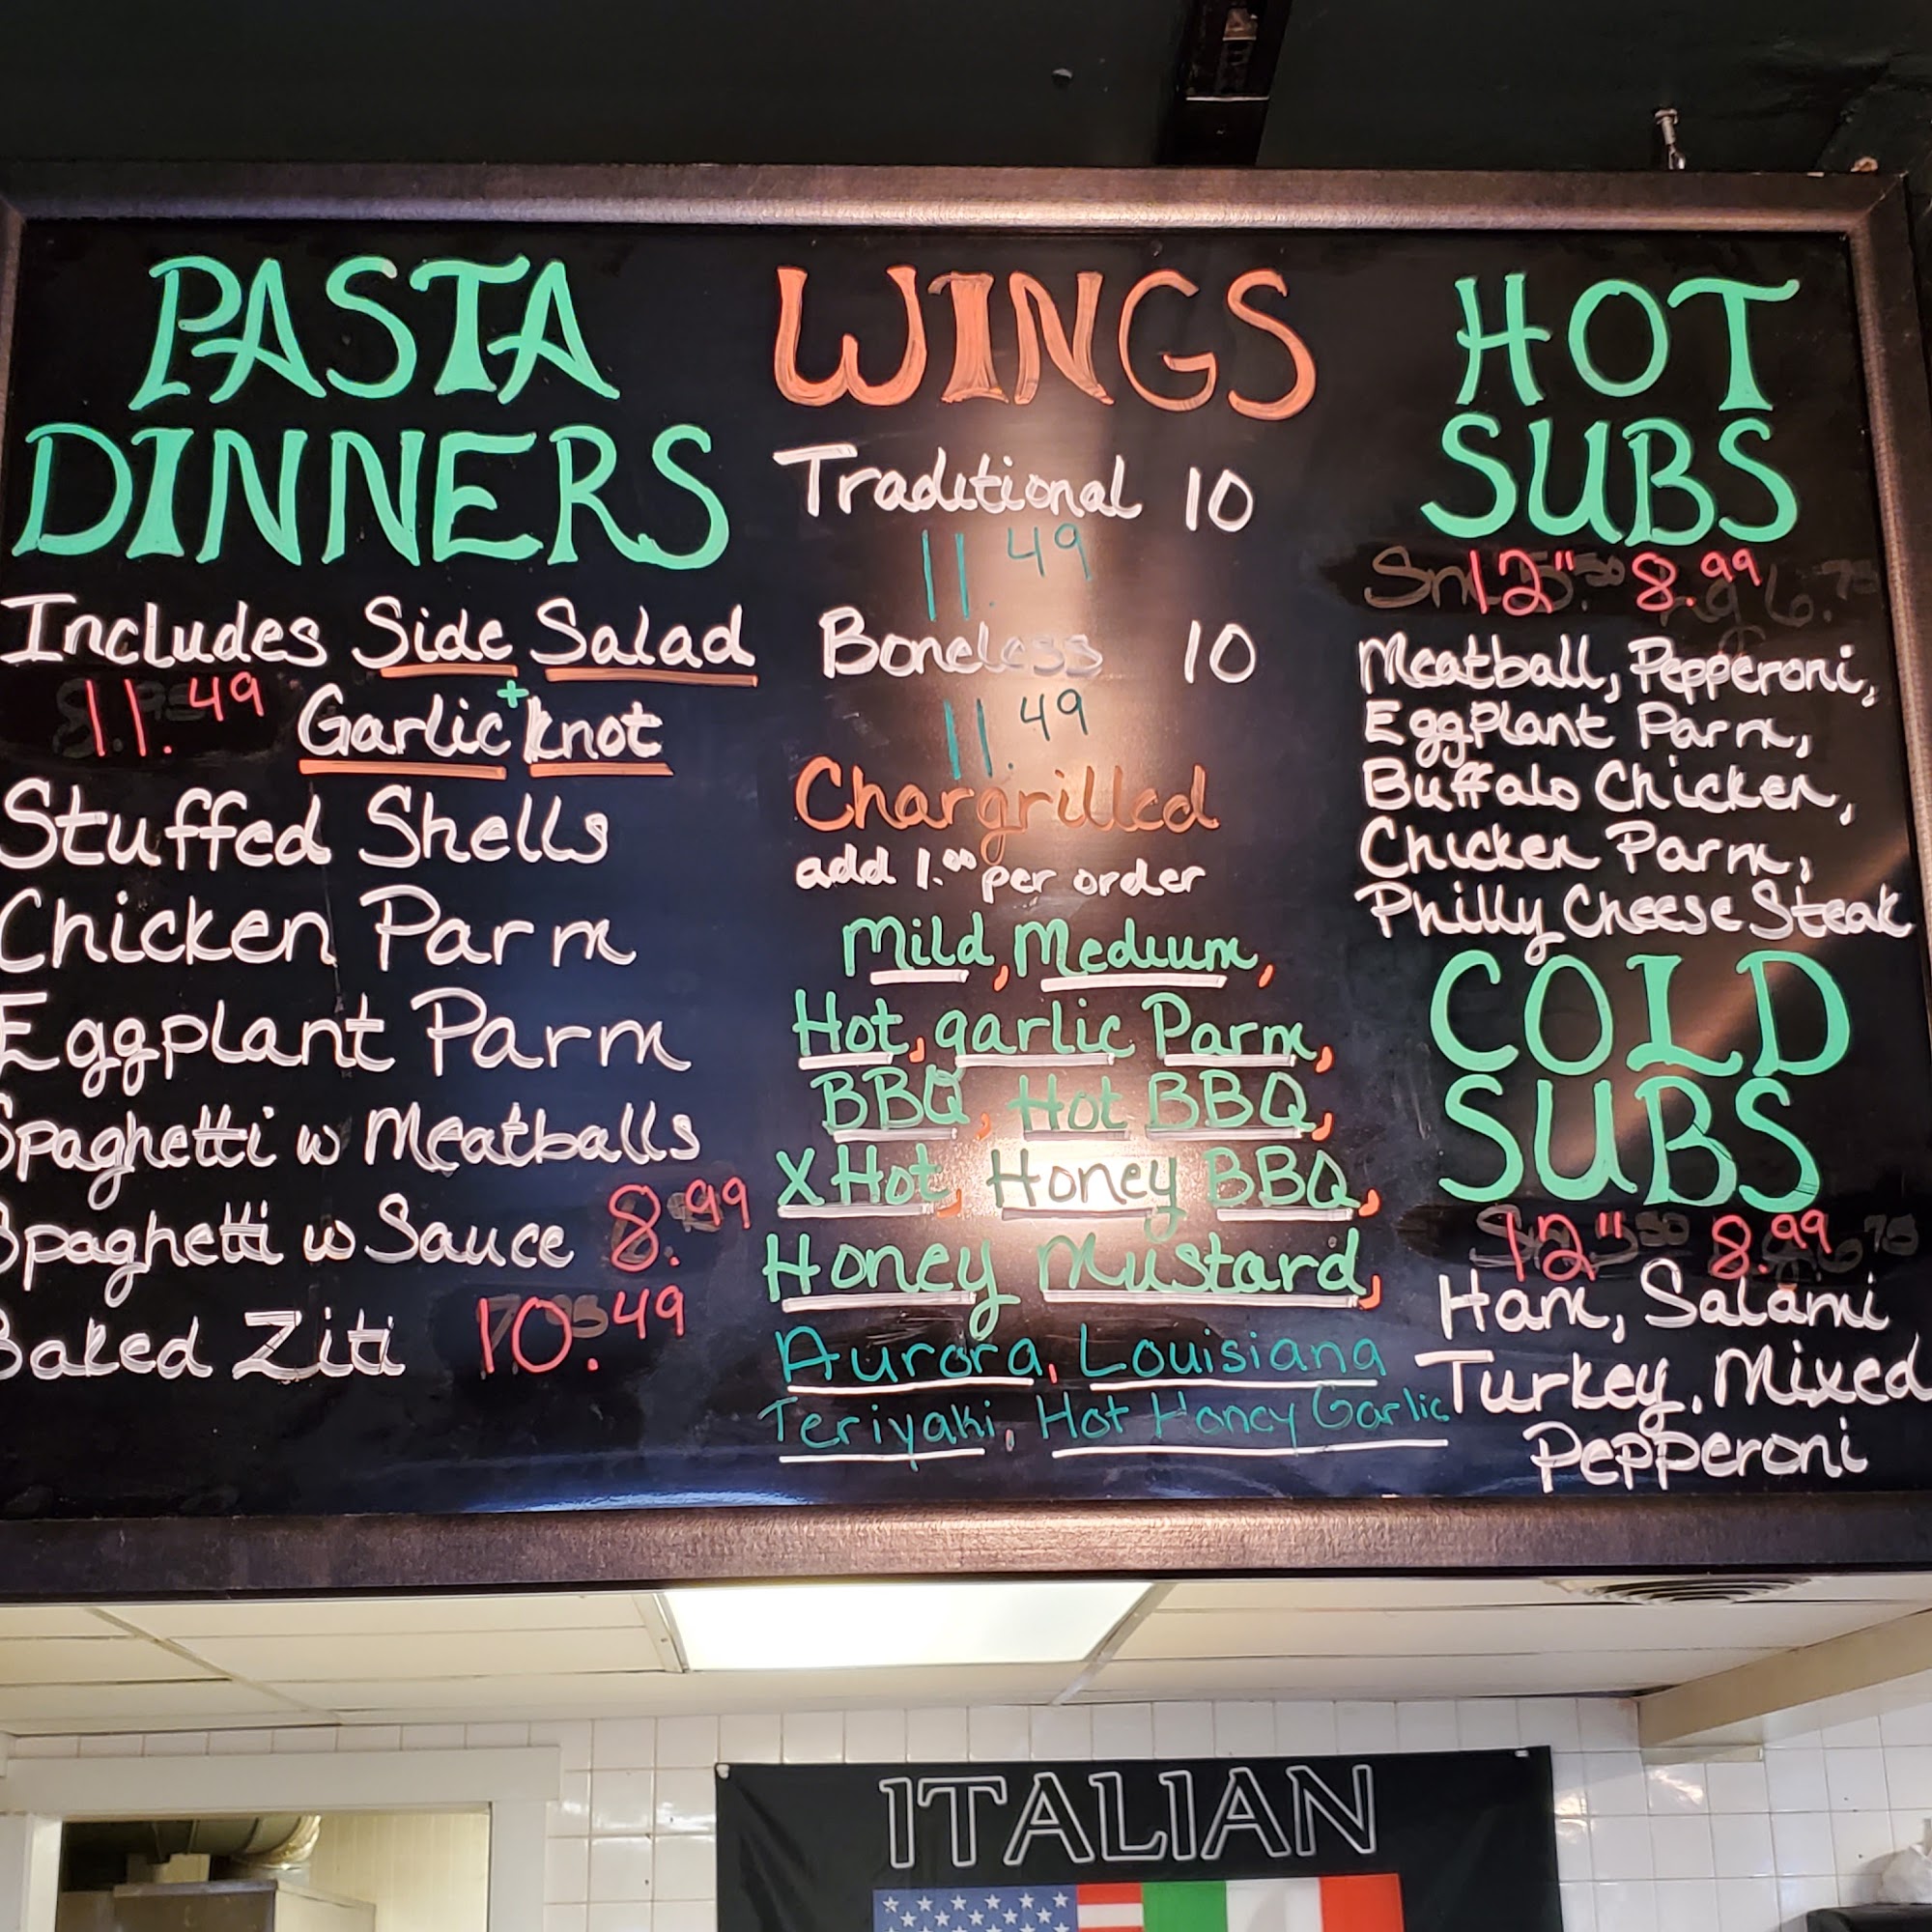 PASTA
DINNERS
Includes Side Salad
11.49 Garlic + knot
Stuffed Shells
Chicken Parm
Eggplant Parm
Spaghetti w Meatballs
Spaghetti w Sauce 8.99
Baked Ziti 10.49
WINGS
Traditional 10
11.49
Boneless 10
11.49
Chargrilled
add 1.00 per order
Mild, Medium,
Hot, garlic Parm,
BBQ, Hot BBQ,
X Hot, Honey BBQ,
Honey Mustard,
Aurora, Louisiana
Teriyaki, Hot Honey Garlic
HOT
SUBS
12" 8.99
Meatball, Pepperoni,
EggPlant Parm,
Buffalo Chicken,
Chicken Parm,
Philly Cheese Steak
COLD
SUBS
12" 8.99
Ham, Salami
Turkey, Mixed
Pepperoni
ITALIAN